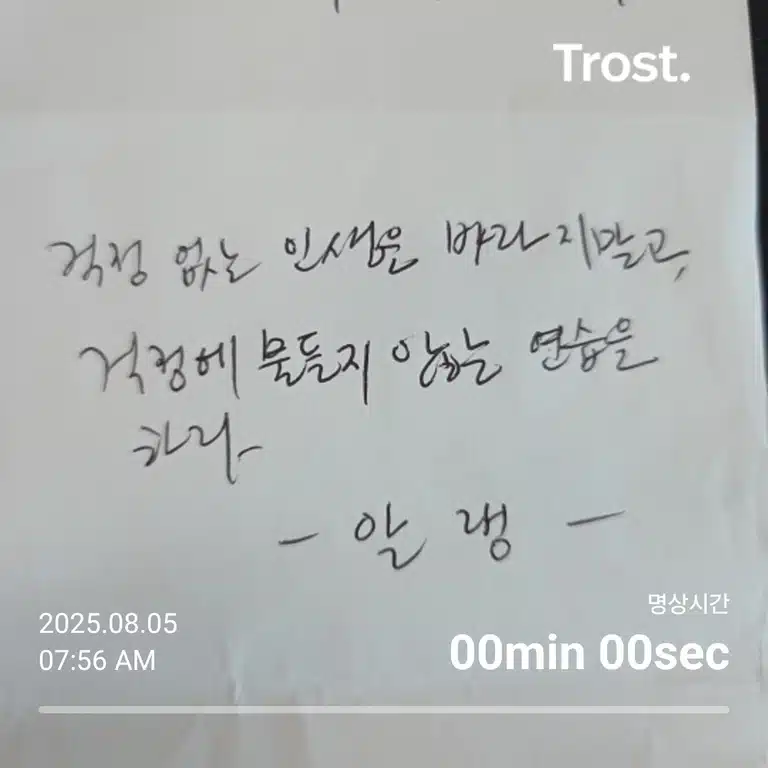 Trost.
걱정 없는 인생을 바라지말고,
걱정에 물들지 않는 연습을
하라.
- 알랭 -
명상시간
2025.08.05
00min 00sec
07:56 AM